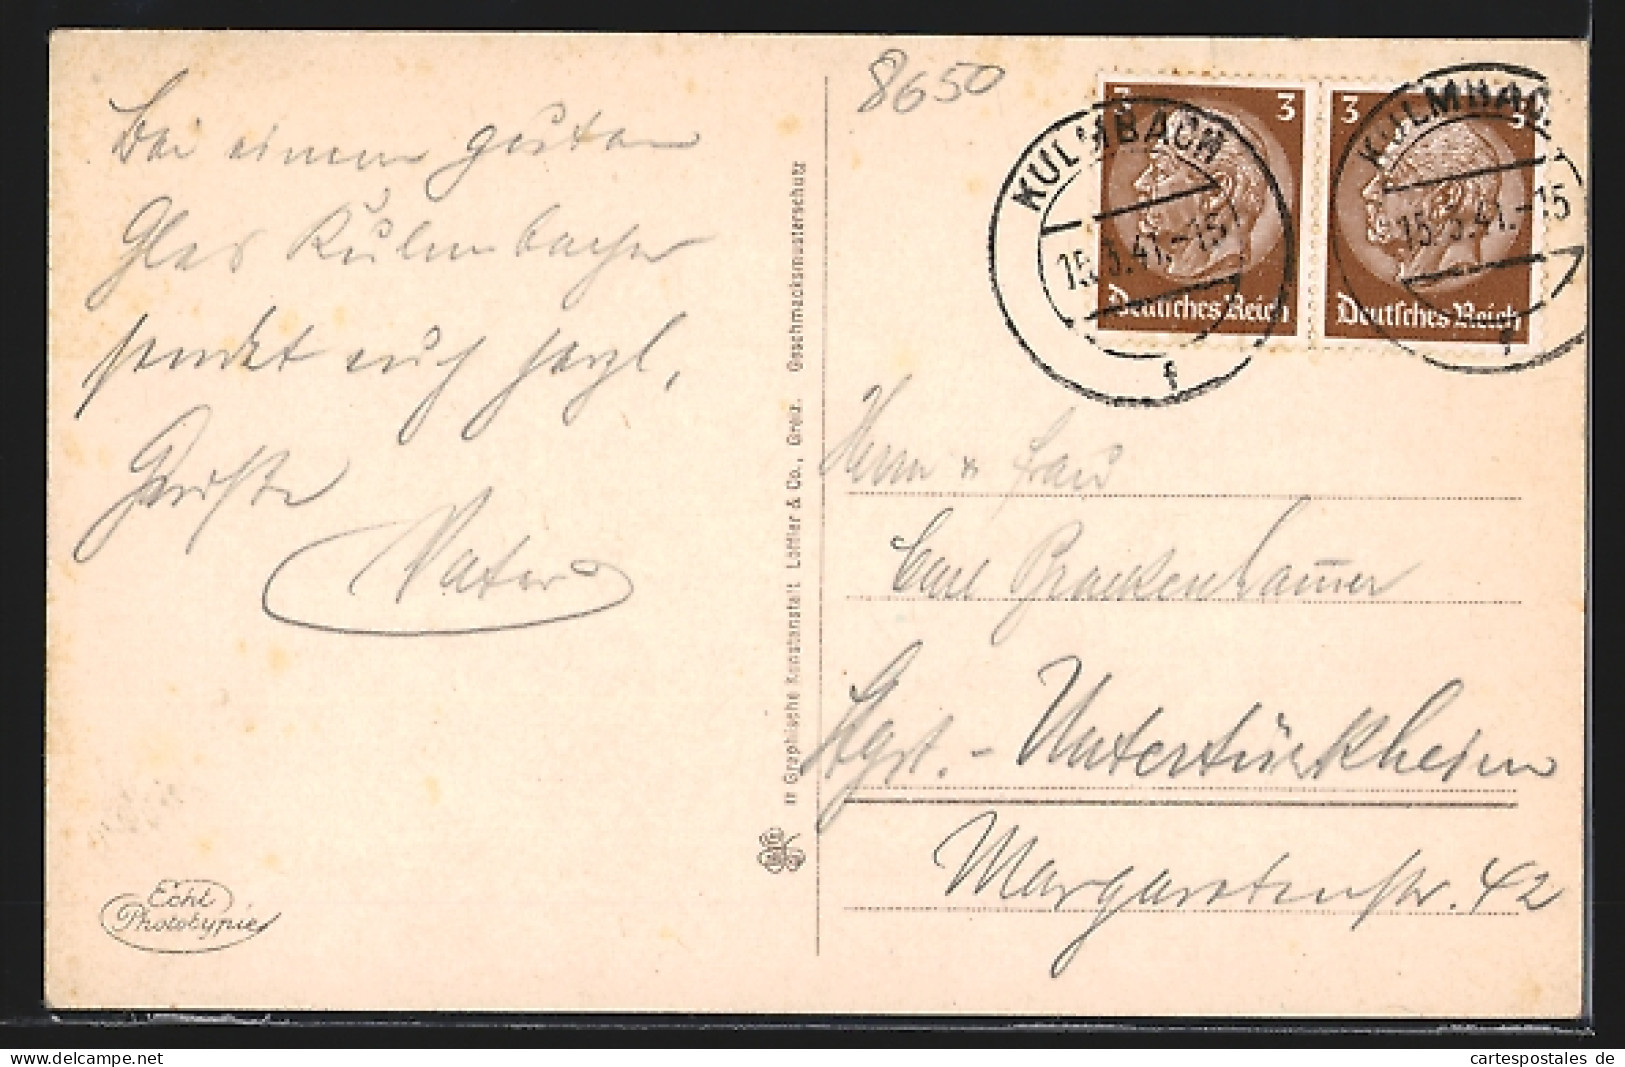 Bei einem guten
Glas Kulmbacher
sendet euch herzl.
Grüße
Vater
Echt
Photobypie
rr Graphische Kunstanstalt Löffler & Co., Greiz. Geschmacksmusterschutz
8650
3 3
Deutsches Reich
3 3
Deutsches Reich
KULMBACH
15.3.41.-15
f
KULMBACH
15.3.41.-15
f
Herrn u Frau
Carl
Stgt.-Untertürkheim
Margaretenstr. 42
cartespostales de